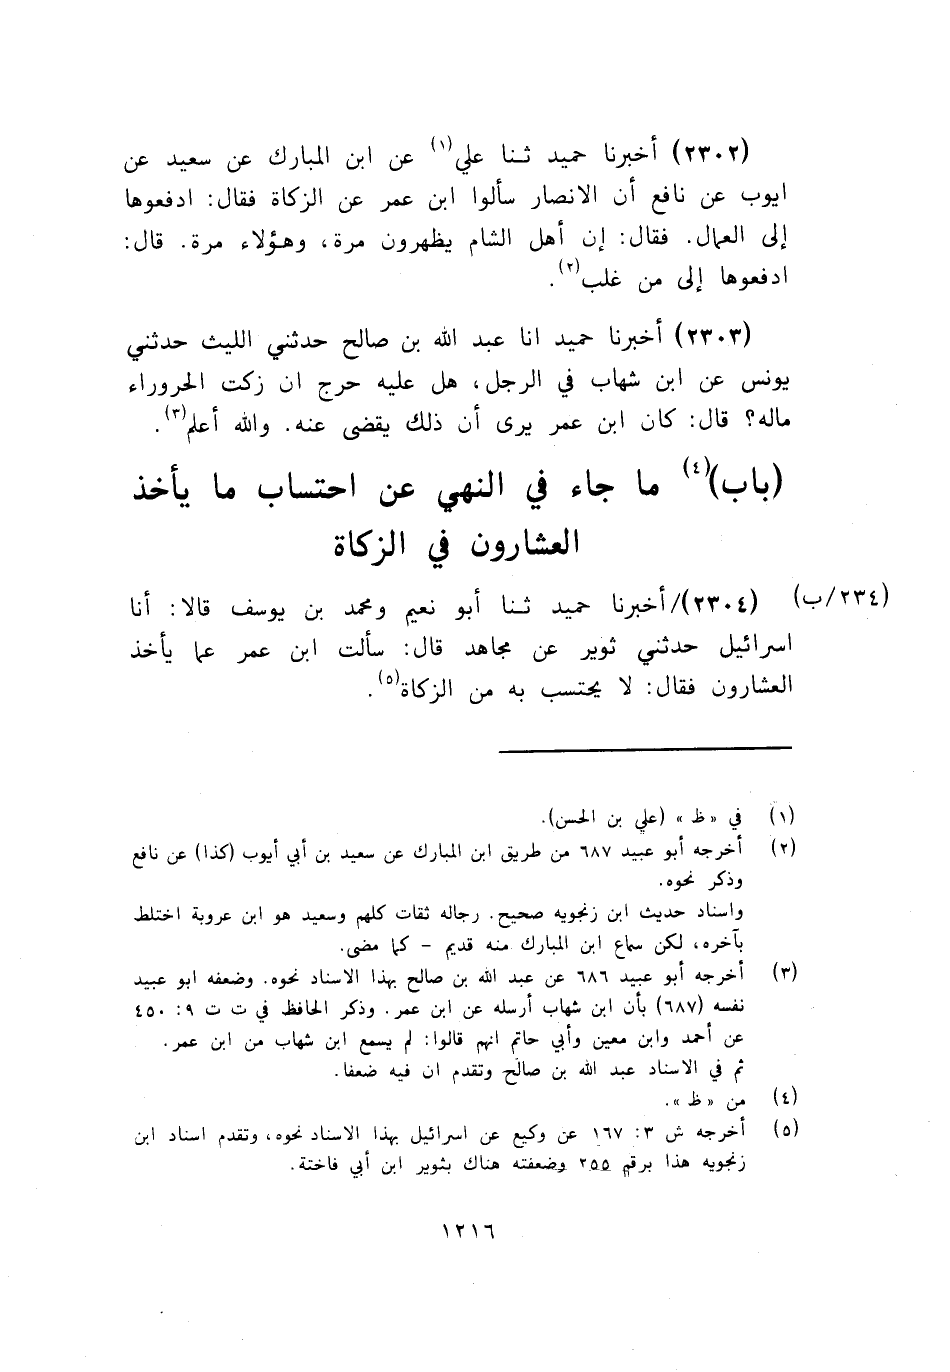 (٢٣٠٢) أخبرنا حميد ثنا علي(١) عن ابن المبارك عن سعيد عن
ايوب عن نافع أن الانصار سألوا ابن عمر عن الزكاة فقال: ادفعوها
إلى العمال. فقال: إن أهل الشام يظهرون مرة، وهؤلاء مرة. قال:
ادفعوها إلى من غلب(٢).
(٢٣٠٣) أخبرنا حميد انا عبد الله بن صالح حدثني الليث حدثني
يونس عن ابن شهاب في الرجل، هل عليه حرج ان زكت الحروراء
ماله؟ قال: كان ابن عمر يرى أن ذلك يقضى عنه. والله أعلم(٣).
(باب)(٤) ما جاء في النهي عن احتساب ما يأخذ
العشارون في الزكاة
(٢٣٤/ب) (٢٣٠٤)/أخبرنا حميد ثنا أبو نعيم ومحمد بن يوسف قالا: أنا
اسرائيل حدثني ثوير عن مجاهد قال: سألت ابن عمر عما يأخذ
العشارون فقال: لا يحتسب به من الزكاة(٥).
(١) في «ظ» (علي بن الحسن).
(٢) أخرجه أبو عبيد ٦٨٧ من طريق ابن المبارك عن سعيد بن أبي أيوب (كذا) عن نافع
وذكر نحوه.
واسناد حديث ابن زنجويه صحيح. رجاله ثقات كلهم وسعيد هو ابن عروبة اختلط
بآخره، لكن سماع ابن المبارك منه قديم - كما مضى.
(٣) أخرجه أبو عبيد ٦٨٦ عن عبد الله بن صالح بهذا الاسناد نحوه. وضعفه ابو عبيد
نفسه (٦٨٧) بأن ابن شهاب أرسله عن ابن عمر. وذكر الحافظ في ت ت ٩: ٤٥٠
عن أحمد وابن معين وأبي حاتم انهم قالوا: لم يسمع ابن شهاب من ابن عمر.
ثم في الاسناد عبد الله بن صالح وتقدم ان فيه ضعفا.
(٤) من «ظ».
(٥) أخرجه ش ٣: ١٦٧ عن وكيع عن اسرائيل بهذا الاسناد نحوه، وتقدم اسناد ابن
زنجويه هذا برقم ٢٥٥ وضعفته هناك بثوير ابن أبي فاختة.
١٢١٦